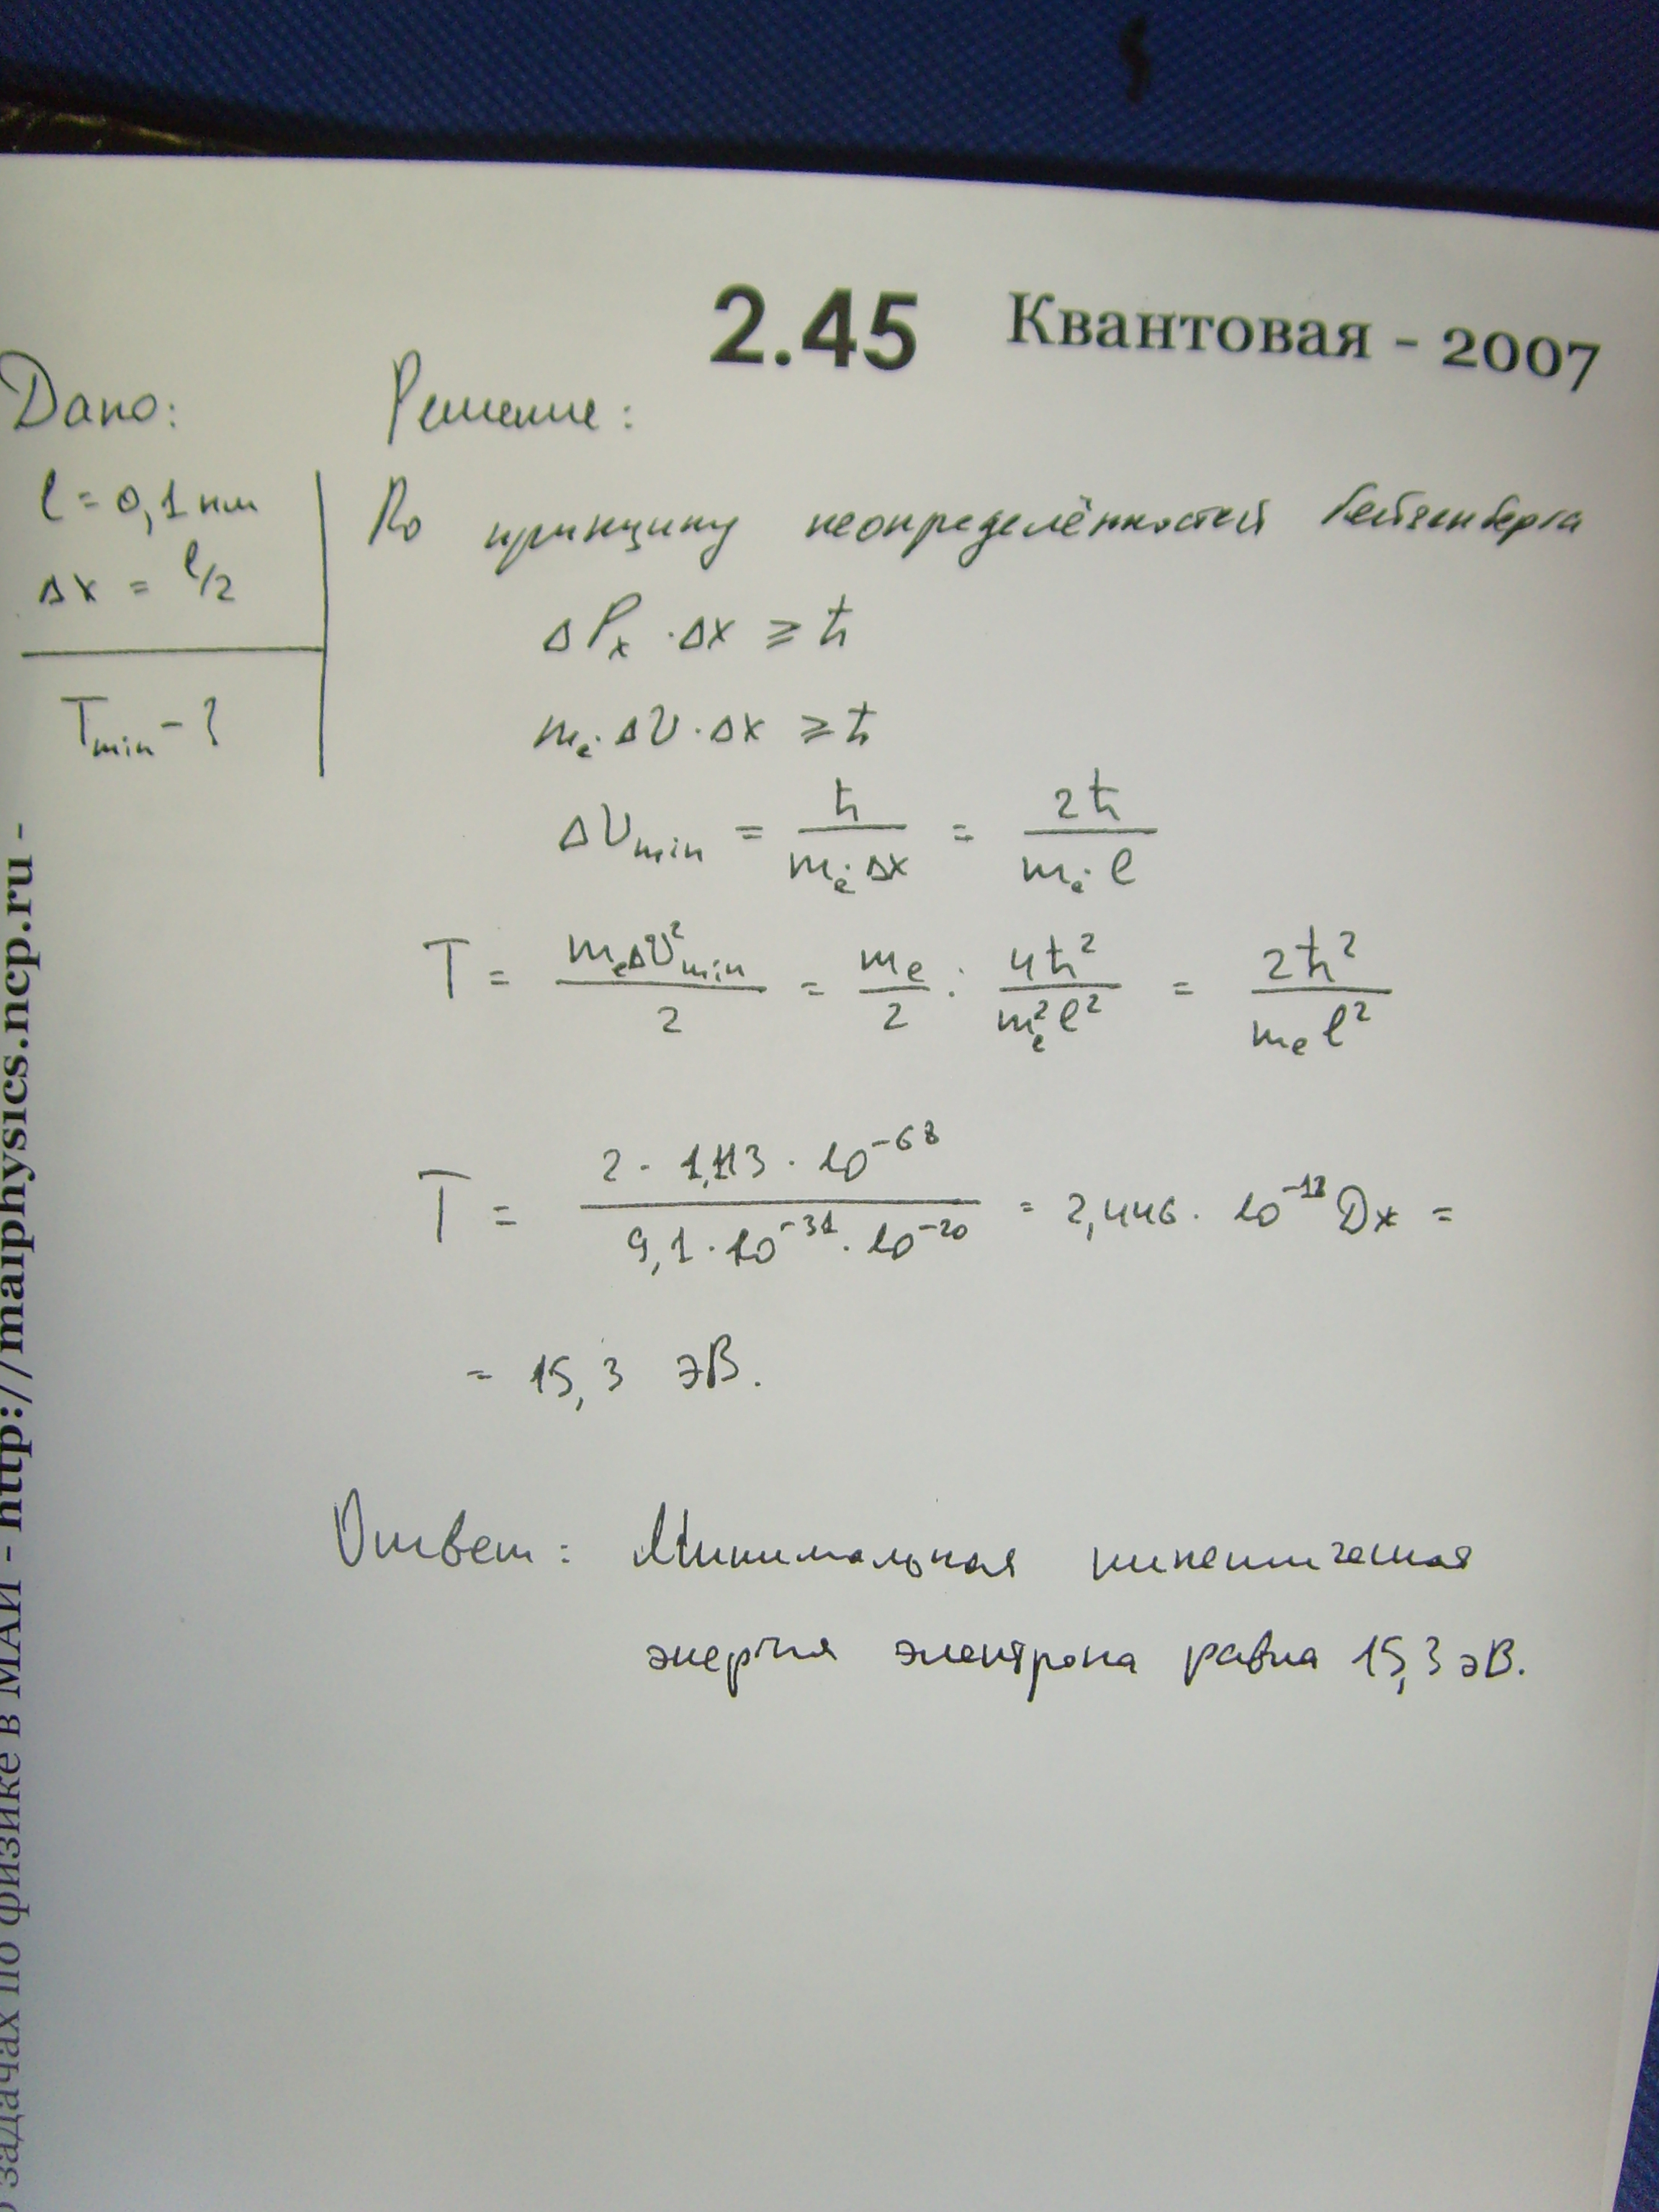 2.45 Квантовая - 2007
Дано:
l = 0,1 нм
Δx = l/2
Tmin - ?
Решение:
По принципу неопределённостей Гейзенберга
ΔPx · Δx ≥ ħ
me · ΔV · Δx ≥ ħ
ΔVmin = ħ / (me · Δx) = 2ħ / (me · l)
T = meΔV²min / 2 = me / 2 · 4ħ² / (me² l²) = 2ħ² / (me l²)
T = 2 · 1,113 · 10⁻⁶⁸ / (9,1 · 10⁻³¹ · 10⁻²⁰) = 2,446 · 10⁻¹⁸ Дж =
= 15,3 эВ.
Ответ: Минимальная кинетическая
энергия электрона равна 15,3 эВ.
задачах по физике в МАИ - http://maiphysics.ncp.ru -